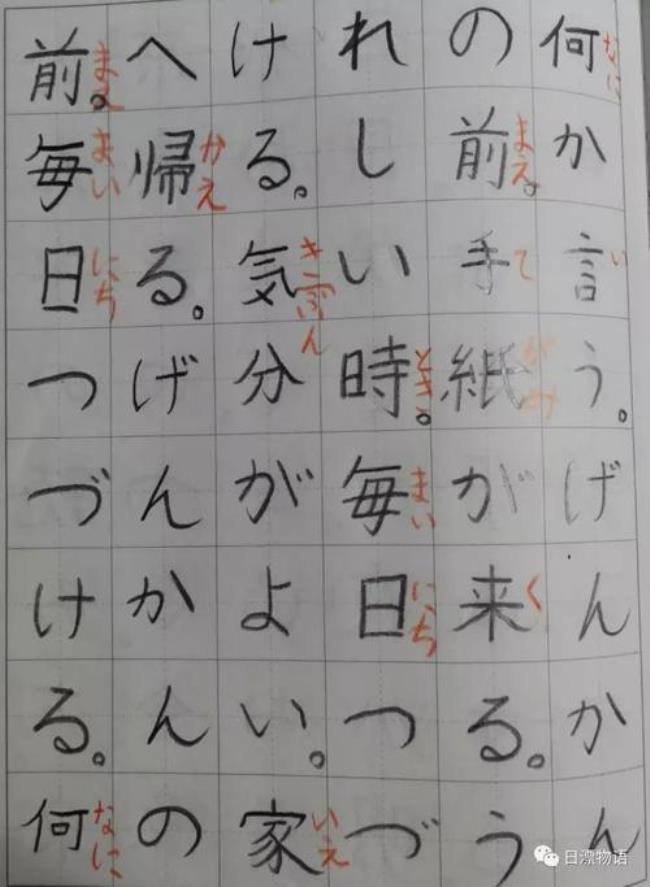 何か言う。げんかん
なに い
の前。手紙が来る。う
まえ て がみ く
れしい時。毎日つづ
とき まい にち
ける。気分がよい。家
き ぶん いえ
へ帰る。げんかんの
かえ
前。毎日つづける。何
まえ まい にち なに
日漂物语